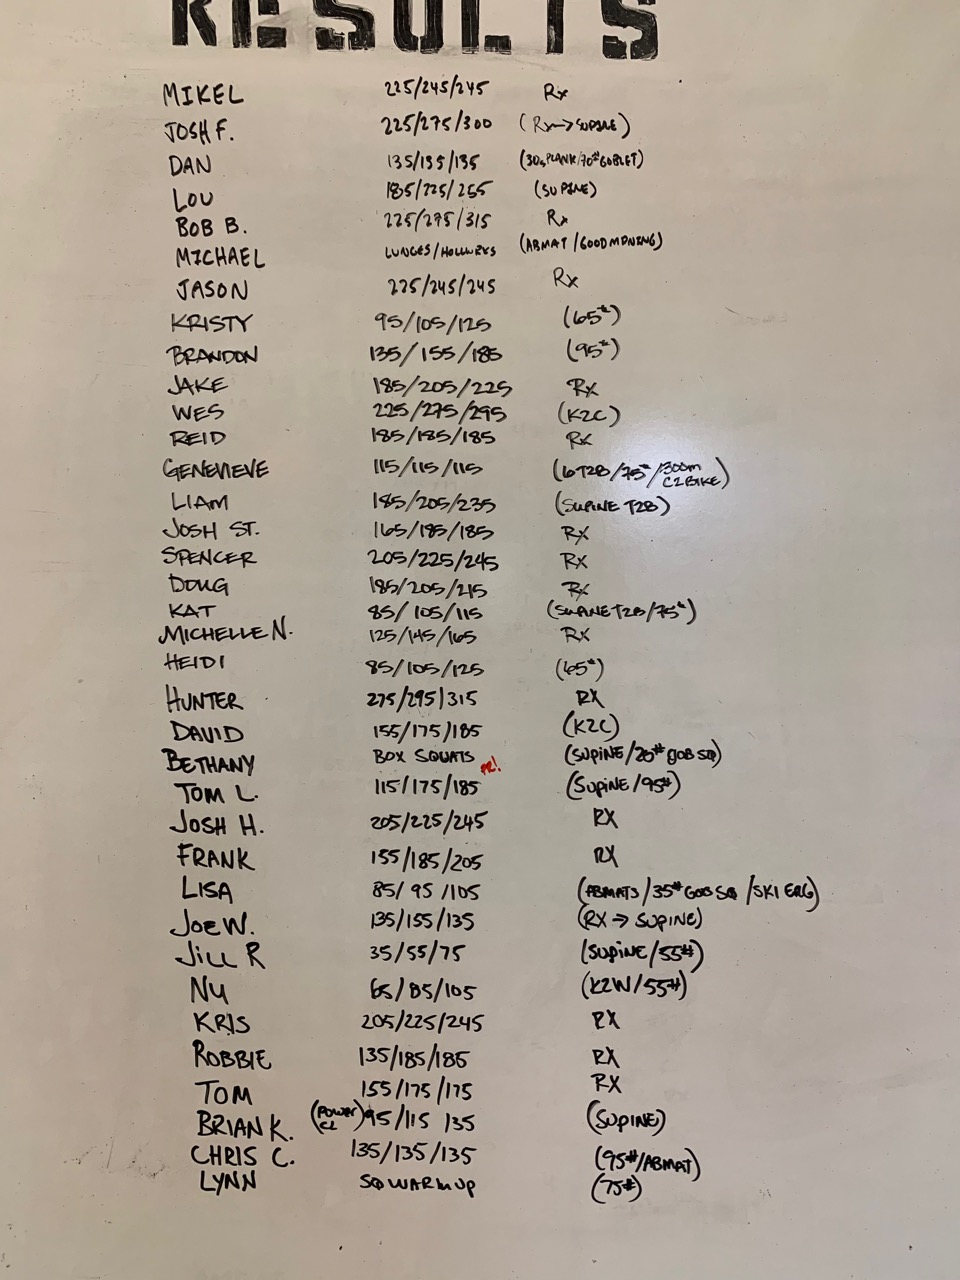 RESULTS
MIKEL 225/245/245 Rx
JOSH F. 225/275/300 (Rx→SUPINE)
DAN 135/135/135 (30s PLANK/70# GOBLET)
LOU 185/225/255 (SUPINE)
BOB B. 225/275/315 Rx
MICHAEL LUNGES/HOLLLWRKS (ABMAT/GOODMORNING)
JASON 225/245/245 Rx
KRISTY 95/105/125 (65#)
BRANDON 135/155/185 (95#)
JAKE 185/205/225 Rx
WES 225/275/295 (K2C)
REID 185/185/185 Rx
GENEVIEVE 115/115/115 (6T2B/75#/300m C2BIKE)
LIAM 185/205/235 (SUPINE T2B)
JOSH ST. 165/185/185 RX
SPENCER 205/225/245 RX
DOUG 185/205/215 RX
KAT 85/105/115 (SUPINE T2B/75#)
MICHELLE N. 125/145/165 RX
HEIDI 85/105/125 (65#)
HUNTER 275/295/315 RX
DAVID 155/175/185 (K2C)
BETHANY BOX SQUATS (SUPINE/25# GOB SQ)
PR!
TOM L. 115/175/185 (SUPINE/95#)
JOSH H. 205/225/245 RX
FRANK 155/185/205 RX
LISA 85/95/105 (ABMATS/35# GOB SQ/SKI ERG)
JOE W. 135/155/135 (RX→SUPINE)
JILL R 35/55/75 (SUPINE/55#)
NU 65/85/105 (K2W/55#)
KRIS 205/225/245 RX
ROBBIE 135/185/185 RX
TOM 155/175/175 RX
BRIAN K. (POWER CL) 95/115 135 (SUPINE)
CHRIS C. 135/135/135 (95#/ABMAT)
LYNN SQ WARMUP (75#)